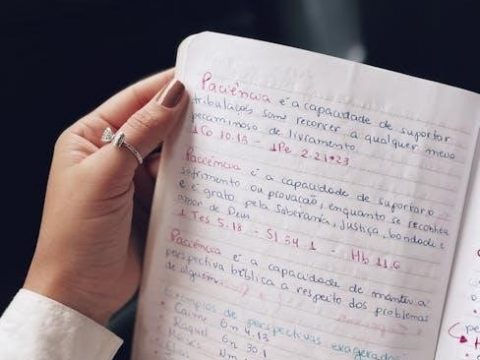 Paciência é a capacidade de suportar
tribulações sem recorrer a qualquer meio
pecaminoso de livramento.
1Co 10.13 - 1Pe 2.21-23
Paciência é a capacidade de suportar o
sofrimento ou provação, enquanto se reconhece
e é grato pela soberania, justiça, bondade e
amor de Deus
1 Tes 5.18 - Sl 34.1 - Hb 11.6
Paciência é a capacidade de manter a
perspectiva bíblica a respeito dos problemas
de alguém.
Exemplos de perspectivas exageradas
• Caim Gn 4.13
• Raquel Gn 30.1
Nm